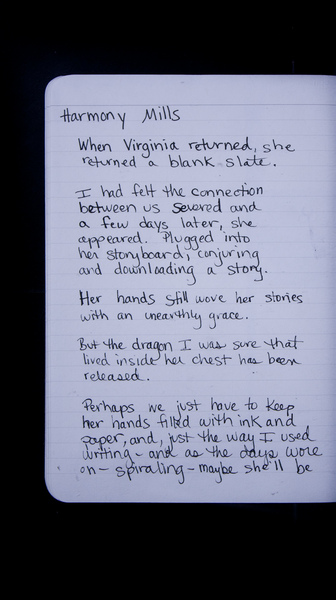 Harmony Mills
When Virginia returned, she
returned a blank slate.
I had felt the connection
between us severed and
a few days later, she
appeared. Plugged into
her storyboard, conjuring
and downloading a story.
Her hands still wove her stories
with an unearthly grace.
But the dragon I was sure that
lived inside her chest has been
released.
Perhaps we just have to keep
her hands filled with ink and
paper, and, just the way I used
writing - and as the days wore
on - spiraling - maybe she'll be